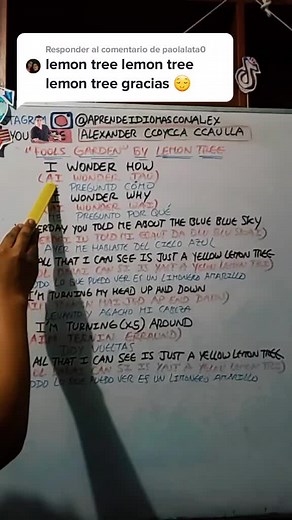 Responder al comentario de paolalata0
lemon tree lemon tree
lemon tree gracias 😌
TAGRAM @APRENDEIDIOMASCONALEX
YOU ALEXANDER CCOYCCA CCAULLA
"FOOLS GARDEN" BY LEMON TREE
I WONDER HOW
(AI WONDER JAU)
PREGUNTO CÓMO
I WONDER WHY
WONDER WAI)
PREGUNTO POR QUÉ
ERDAY YOU TOLD ME ABOUT THE BLUE BLUE SKY
AYER ME HABLASTE DEL CIELO AZUL
ALL THAT I CAN SEE IS JUST A YELLOW LEMON TREE
ODO LO QUE PUEDO VER ES UN LIMONERO AMARILLO
I'M TURNING MY HEAD UP AND DOWN
LEVANTO AGACHO MI CABEZA
I'M TURNING (X5) AROUND
DOY VUELTAS
ALL THAT I CAN SEE IS JUST A YELLOW LEMON TREE
ODO LO QUE PUEDO VER ES UN LIMONERO AMARILLO